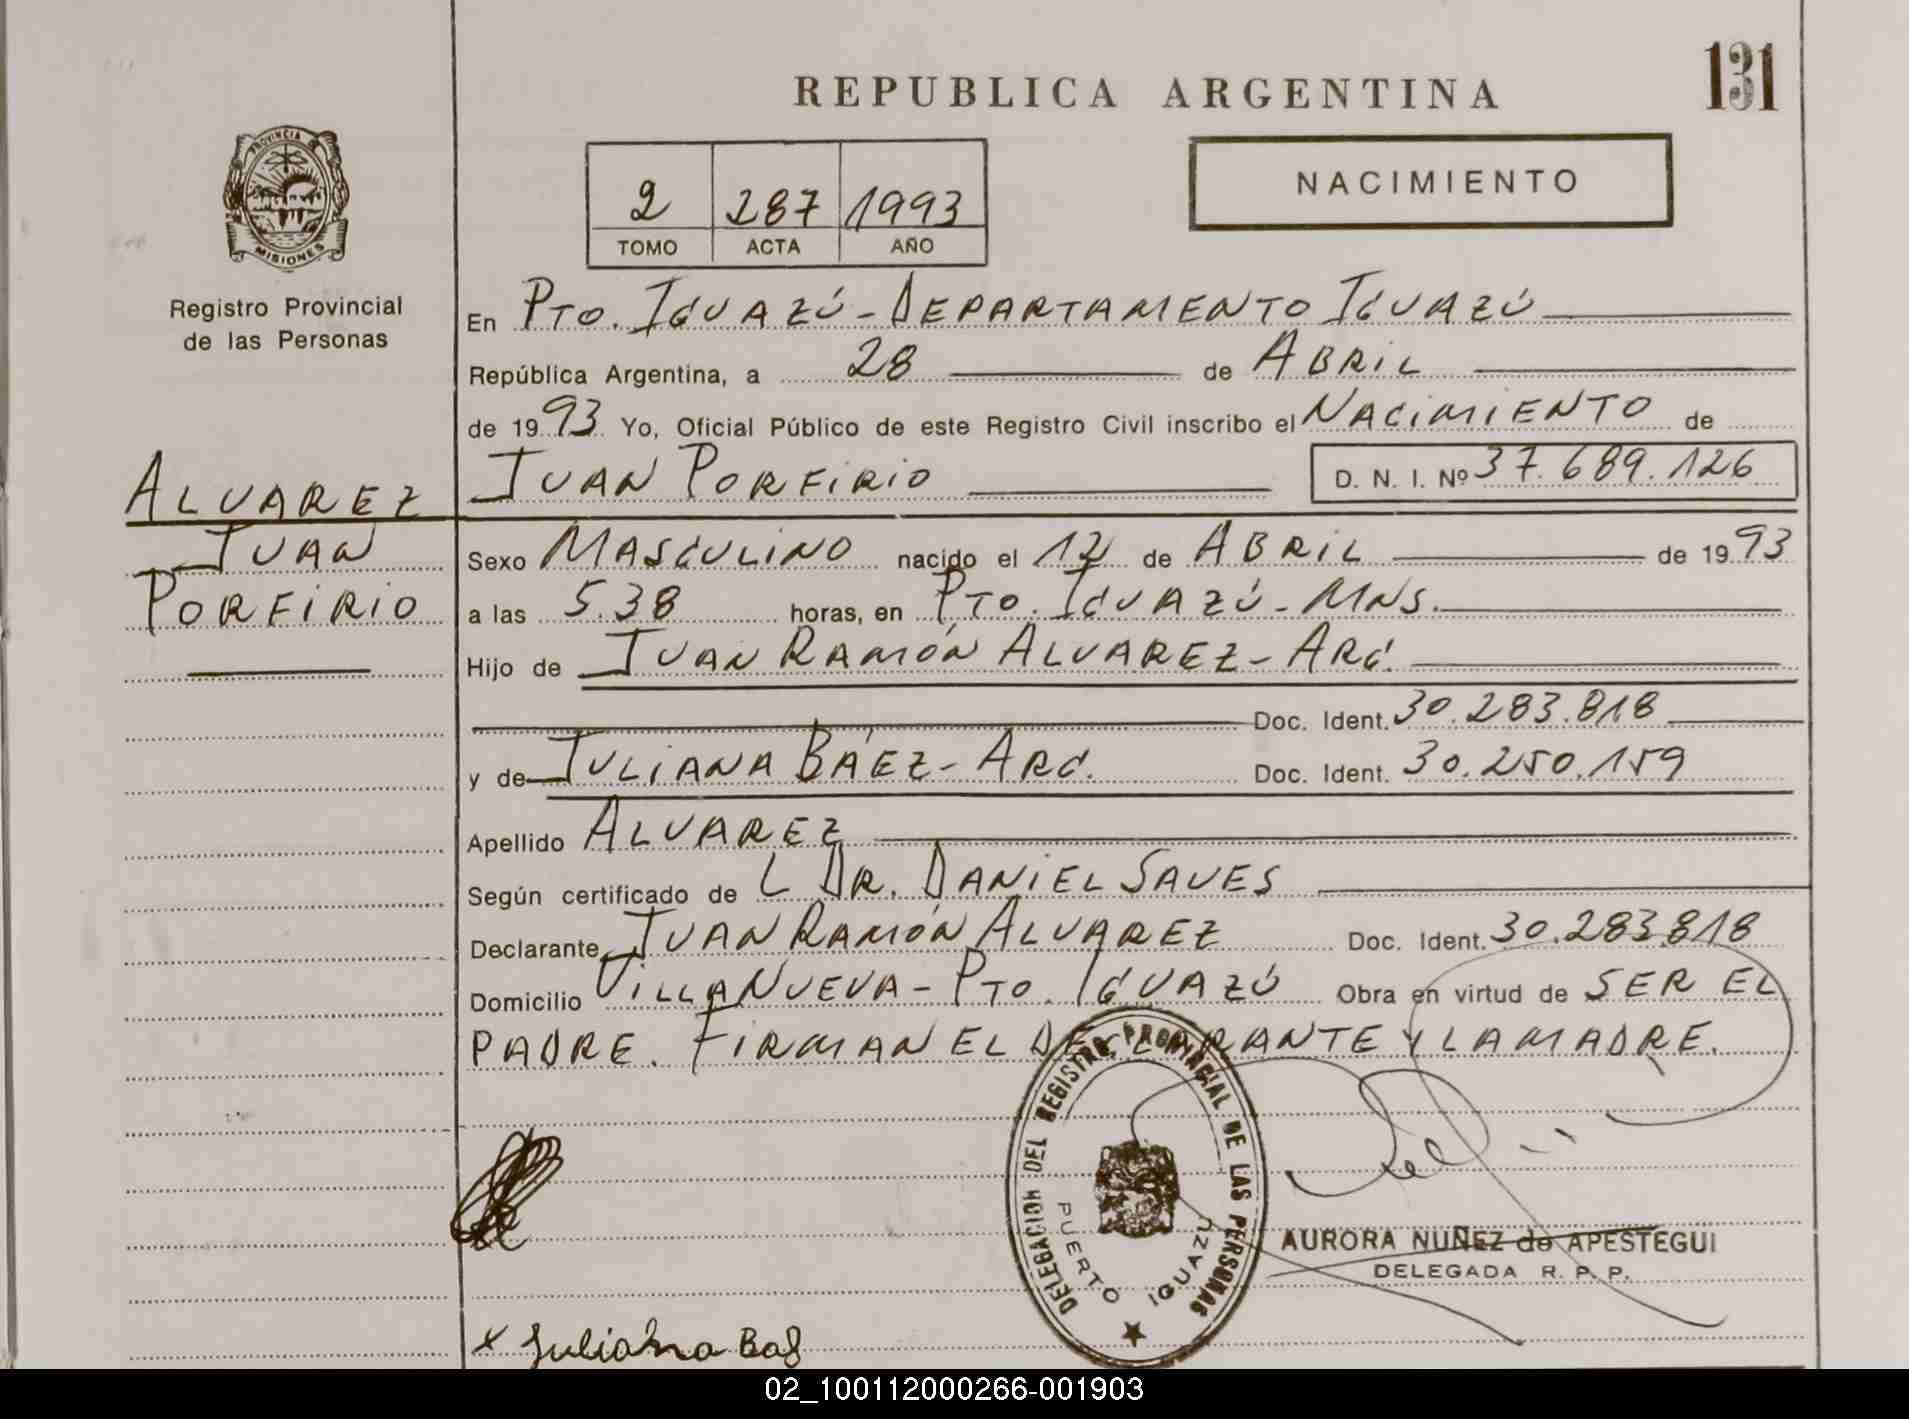 131
REPUBLICA ARGENTINA
PROVINCIA DE
MISIONES
Registro Provincial
de las Personas
2 287 1993
TOMO ACTA AÑO
NACIMIENTO
En PTO. IGUAZÚ - DEPARTAMENTO IGUAZÚ
República Argentina, a 28 de ABRIL
de 1993 Yo, Oficial Público de este Registro Civil inscribo el NACIMIENTO de
JUAN PORFIRIO D. N. I. Nº 37.689.126
ALVAREZ
JUAN
PORFIRIO
Sexo MASCULINO nacido el 17 de ABRIL de 1993
a las 5.38 horas, en PTO. IGUAZÚ - MNS.
Hijo de JUAN RAMÓN ALVAREZ - ARG.
Doc. Ident. 30.283.818
y de JULIANA BÁEZ - ARG. Doc. Ident. 30.250.159
Apellido ALVAREZ
Según certificado de L DR. DANIEL SAVES
Declarante JUAN RAMÓN ALVAREZ Doc. Ident. 30.283.818
Domicilio VILLA NUEVA - PTO. IGUAZÚ Obra en virtud de SER EL
PADRE. FIRMAN EL DECLARANTE Y LA MADRE.
DELEGACION DEL REGISTRO PROVINCIAL DE LAS PERSONAS
PUERTO IGUAZU
AURORA NUÑEZ de APESTEGUI
DELEGADA R. P. P.
x Juliana
02_100112000266-001903